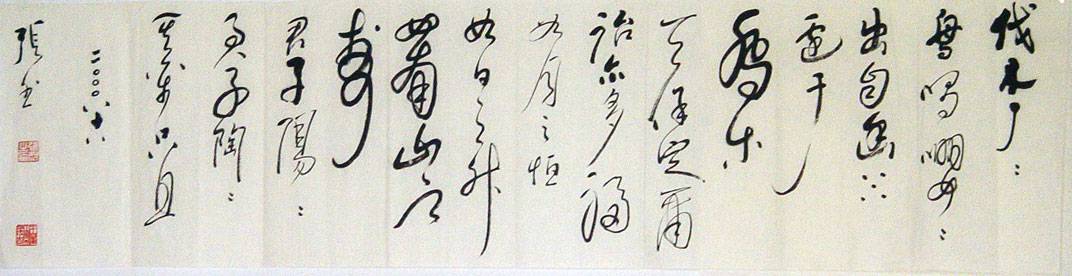 伐木丁：
鳥鳴嚶：
出自幽谷
遷于
喬木
天保定爾
詒尔多福
如月之恒
如日之升
如南山之
壽
君子陽：
君子陶：
其樂只且
二〇〇〇八十八
張